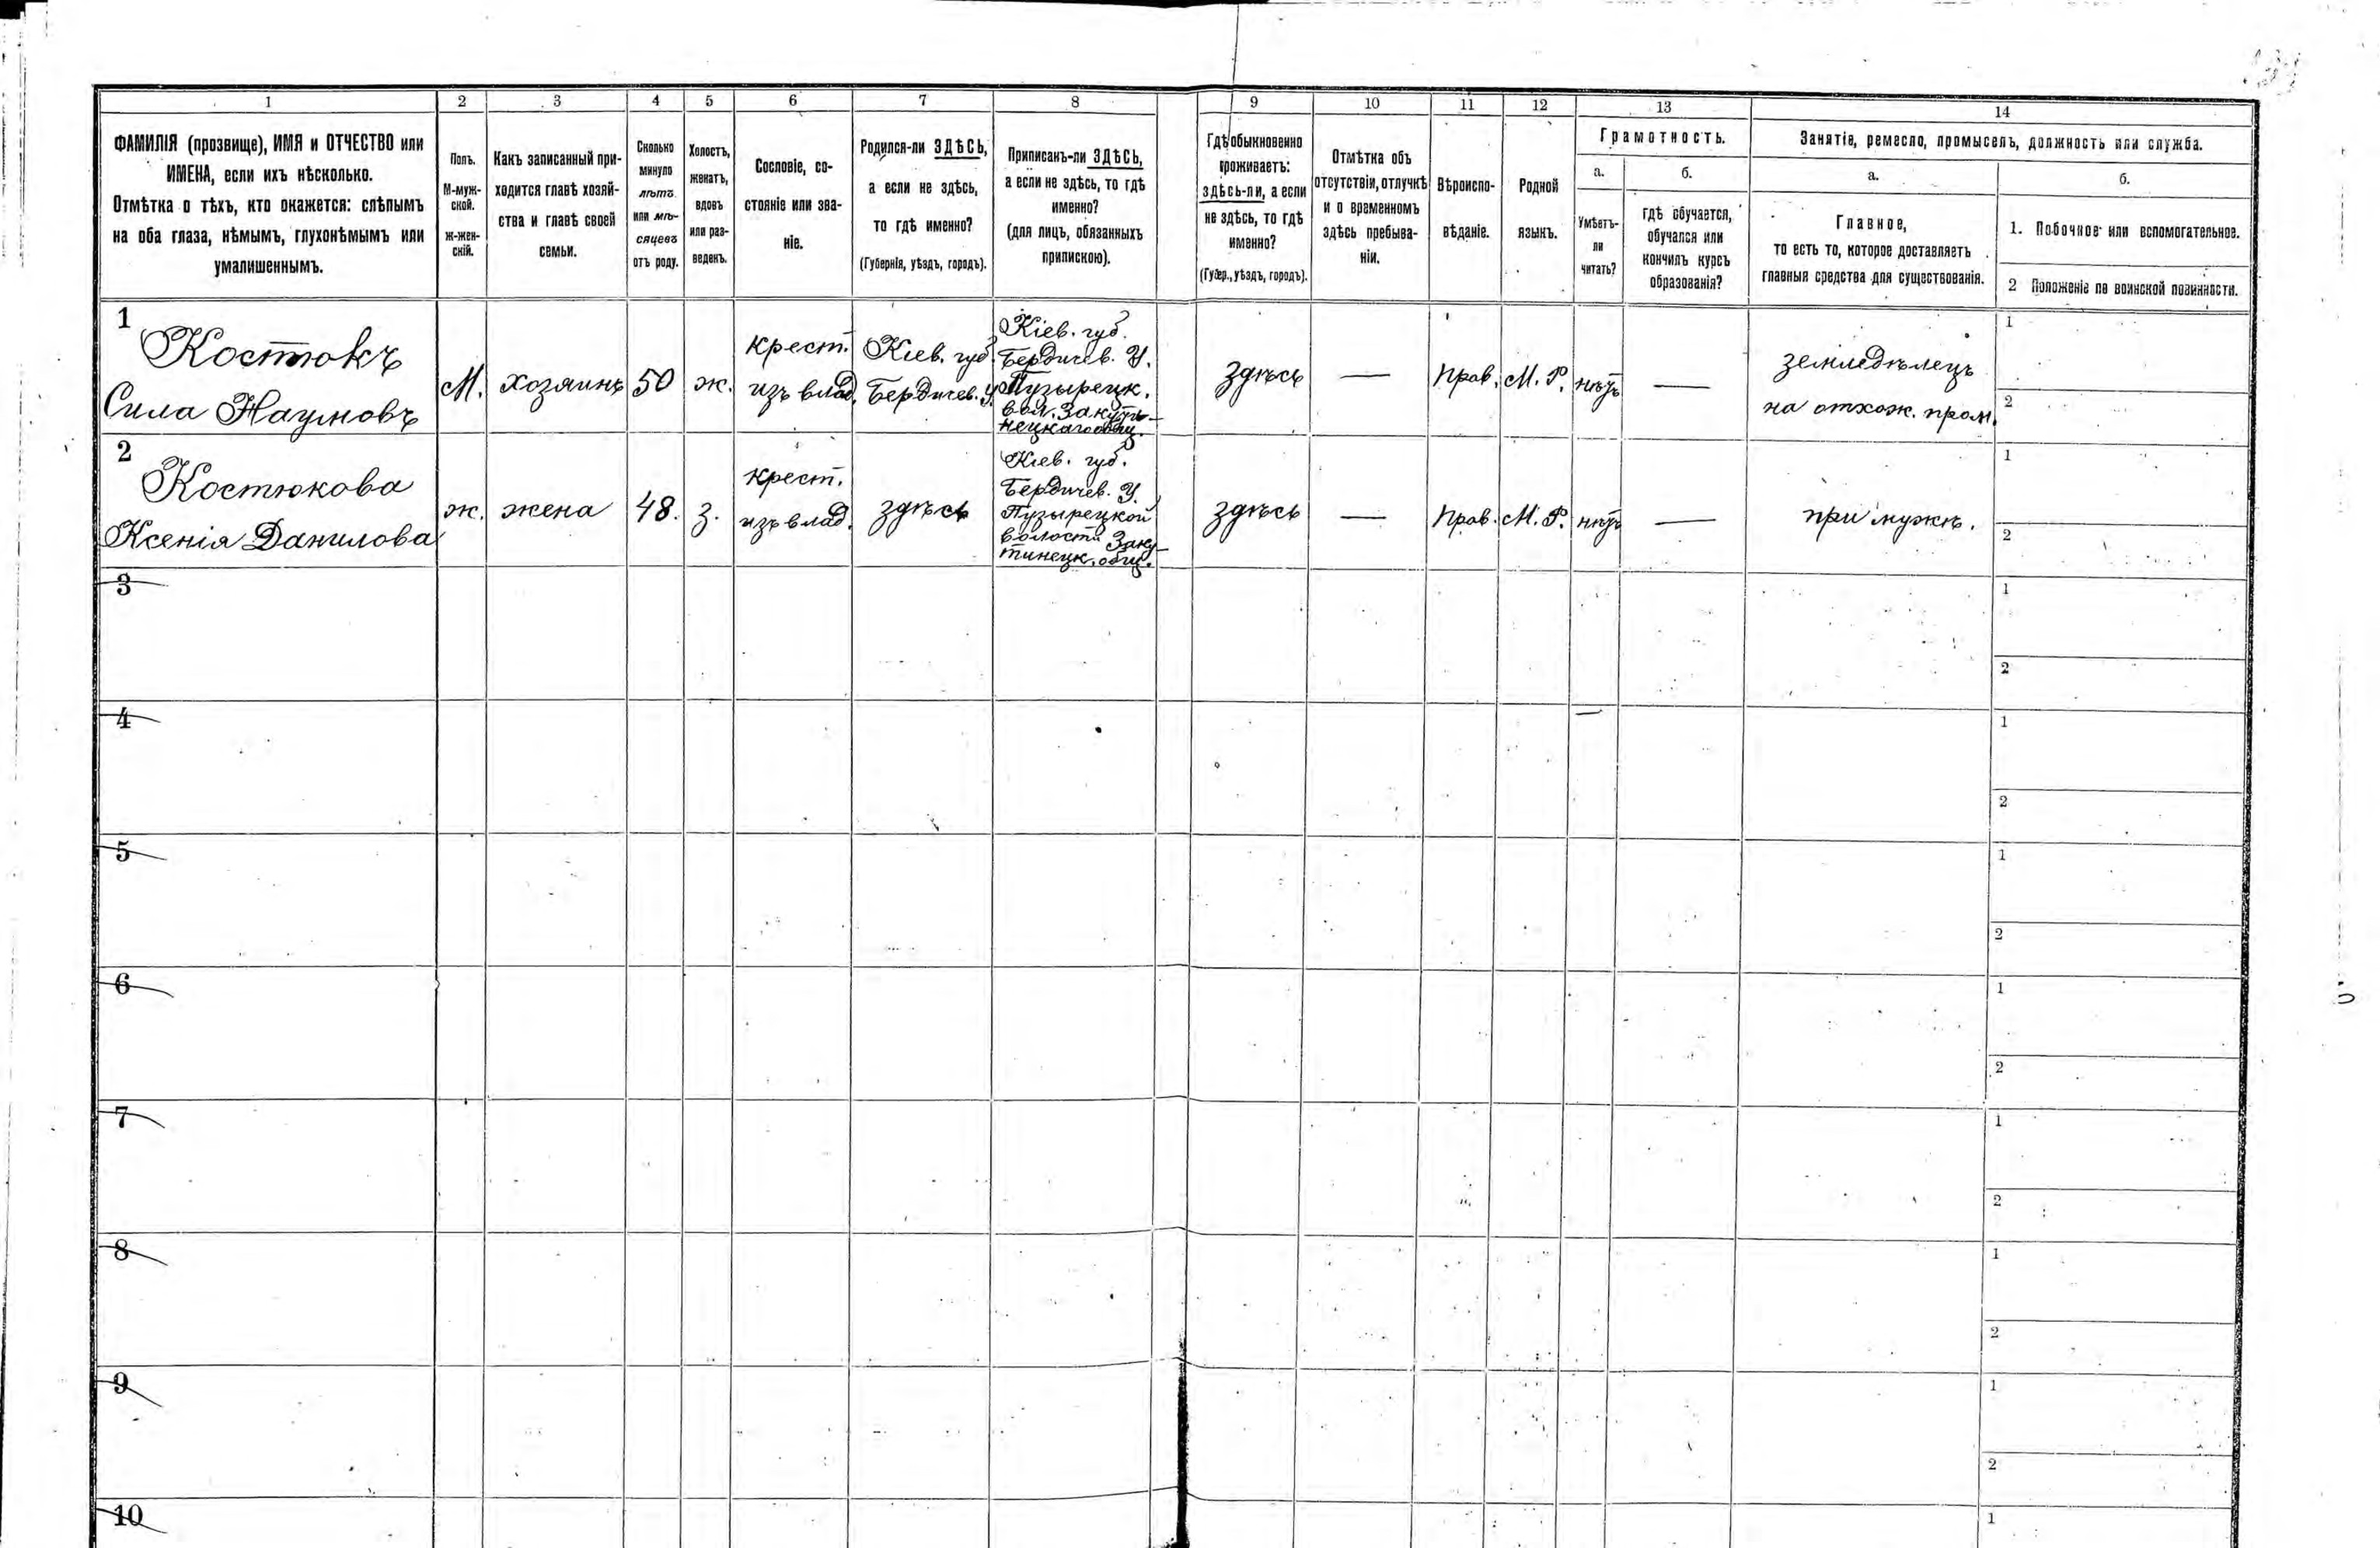 1 2 3 4 5 6 7 8 9 10 11 12 13 14
ФАМИЛІЯ (прозвище), ИМЯ и ОТЧЕСТВО или
ИМЕНА, если ихъ нѣсколько.
Отмѣтка о тѣхъ, кто окажется: слѣпымъ
на оба глаза, нѣмымъ, глухонѣмымъ или
умалишеннымъ.
Полъ.
М-муж-
ской.
ж-жен-
скій.
Какъ записанный при-
ходится главѣ хозяй-
ства и главѣ своей
семьи.
Сколько
минуло
лѣтъ
или мѣ-
сяцевъ
отъ роду.
Холостъ,
женатъ,
вдовъ
или раз-
веденъ.
Сословіе, со-
стояніе или зва-
ніе.
Родился-ли ЗДѢСЬ,
а если не здѣсь,
то гдѣ именно?
(Губернія, уѣздъ, городъ).
Приписанъ-ли ЗДѢСЬ,
а если не здѣсь, то гдѣ
именно?
(для лицъ, обязанныхъ
припискою).
Гдѣ обыкновенно
проживаетъ:
здѣсь-ли, а если
не здѣсь, то гдѣ
именно?
(Губер., уѣздъ, городъ).
Отмѣтка объ
отсутствіи, отлучкѣ
и о временномъ
здѣсь пребыва-
ніи.
Вѣроиспо-
вѣданіе.
Родной
языкъ.
Грамотность.
а.
Умѣетъ-
ли
читать?
б.
гдѣ обучается,
обучался или
кончилъ курсъ
образованія?
Занятіе, ремесло, промыселъ, должность или служба.
а.
Главное,
то есть то, которое доставляетъ
главныя средства для существованія.
б.
1. Побочное или вспомогательное.
2 Положеніе по воинской повинности.
1
Костюкъ
Сила Наумовъ
М.
хозяинъ
50
ж.
крест.
изъ влад.
Кіев. губ.
Бердичев. у.
Кіев. губ.
Бердичев. У.
Пузырецк.
вол. Закути-
нецкаго общ.
здѣсь
—
Прав.
М. Р.
нѣтъ
—
земледѣлецъ
на отхож. пром.
1
2
2
Костюкова
Ксенія Данилова
ж.
жена
48.
з.
крест.
изъ влад.
здѣсь
Кіев. губ.
Бердичев. У.
Пузырецкой
волости Заку-
тинецк. общ.
здѣсь
—
Прав.
М. Р.
нѣтъ
—
при мужѣ.
1
2
3
1
2
4
1
2
5
1
2
6
1
2
7
1
2
8
1
2
9
1
2
10
1